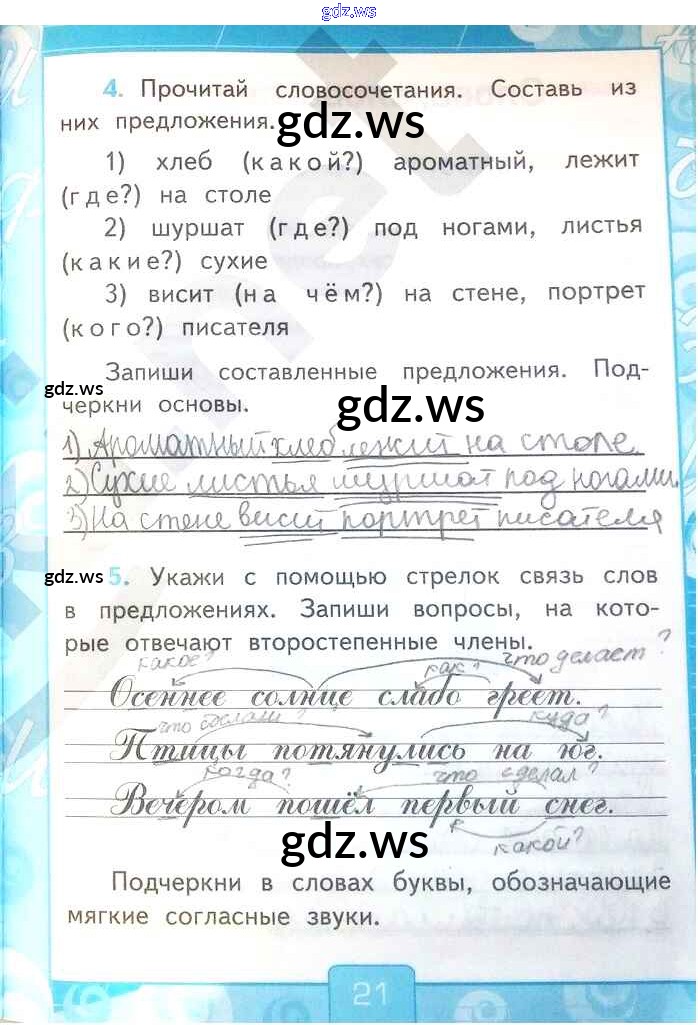 gdz.ws
4. Прочитай словосочетания. Составь из
них предложения.
gdz.ws
1) хлеб (какой?) ароматный, лежит
(где?) на столе
2) шуршат (где?) под ногами, листья
(какие?) сухие
3) висит (на чём?) на стене, портрет
(кого?) писателя
Запиши составленные предложения. Под-
gdz.ws
черкни основы.
gdz.ws
1) Ароматный хлеб лежит на столе.
2) Сухие листья шуршат под ногами.
3) На стене висит портрет писателя
gdz.ws
5. Укажи с помощью стрелок связь слов
в предложениях. Запиши вопросы, на кото-
рые отвечают второстепенные члены.
какое? как? что делает?
Осеннее солнце слабо греет.
что сделали? куда?
Птицы потянулись на юг.
когда? что сделал?
Вечером пошёл первый снег.
какой?
gdz.ws
Подчеркни в словах буквы, обозначающие
мягкие согласные звуки.
21